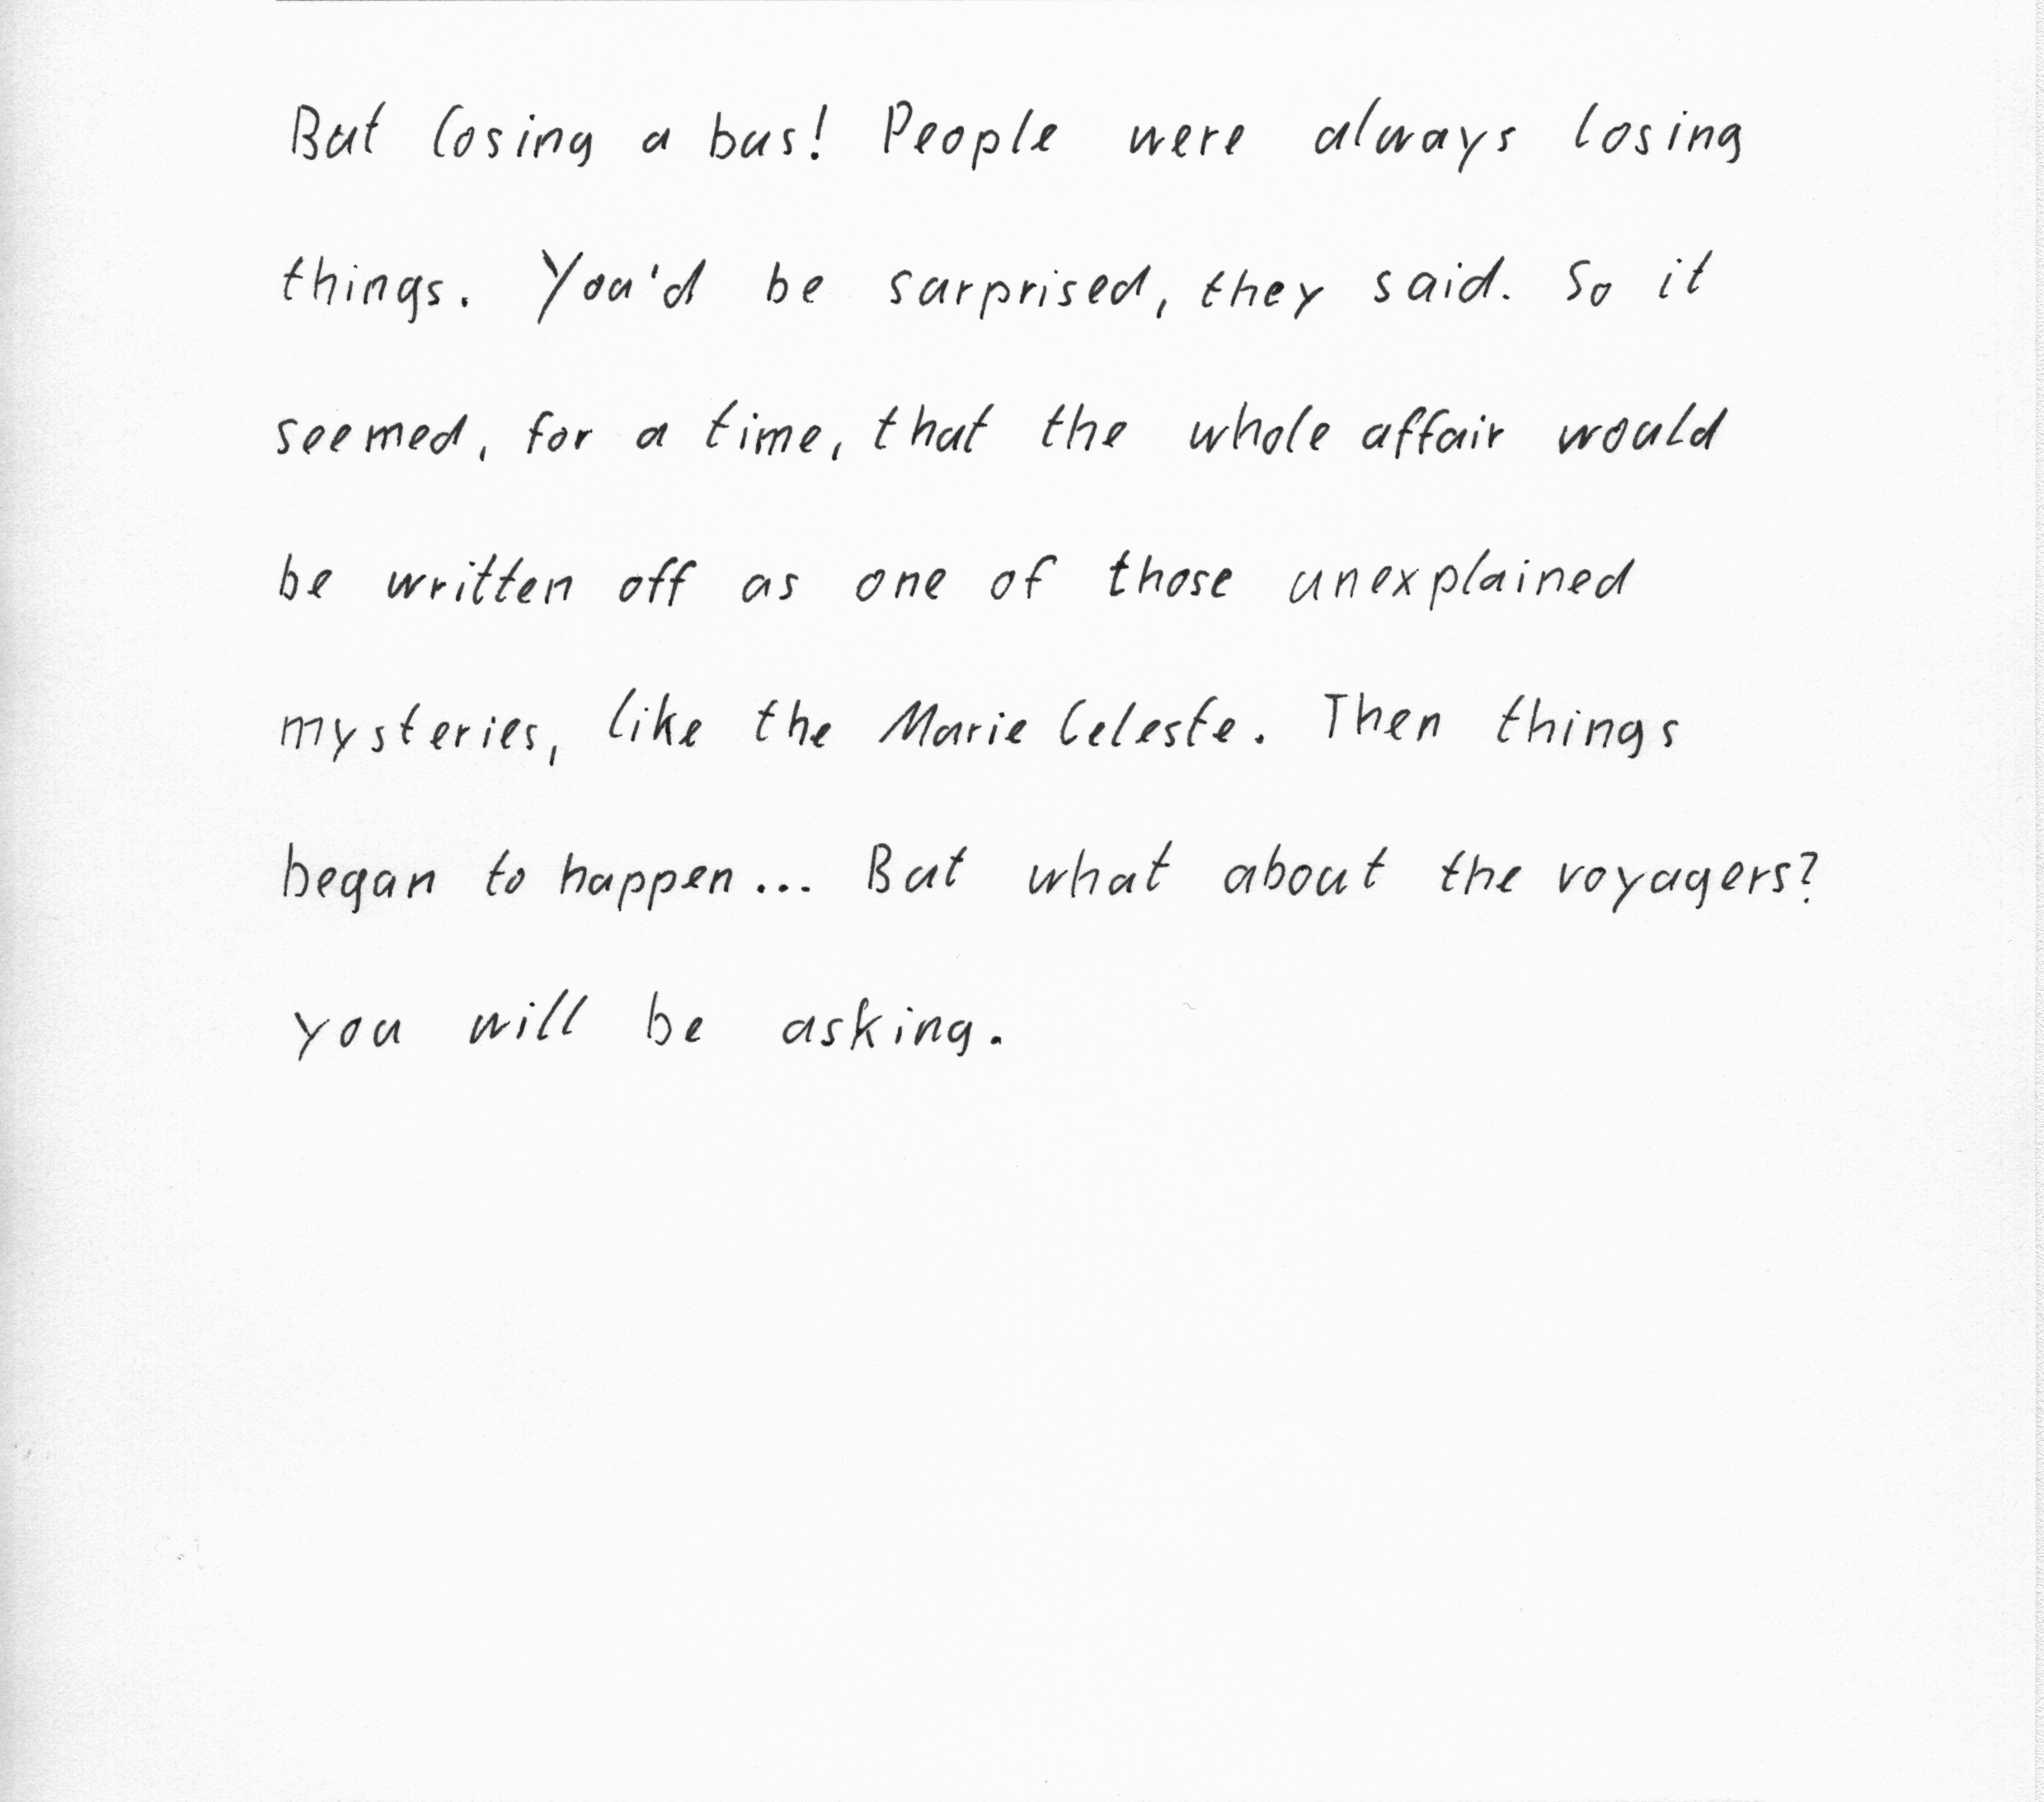 But losing a bus! People were always losing
things. You'd be surprised, they said. So it
seemed, for a time, that the whole affair would
be written off as one of those unexplained
mysteries, like the Marie Celeste. Then things
began to happen... But what about the voyagers?
you will be asking.